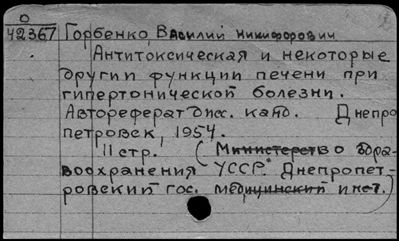 О
42367 Горбенко, Василий Никифорович
Антитоксическая и некоторые
другии функции печени при
гипертонической болезни.
Автореферат дисс. канд. Днепро
петровск, 1954.
11 стр. (Министерство здра-
воохранения УССР. Днепропет-
ровский гос. медицинский инст.)